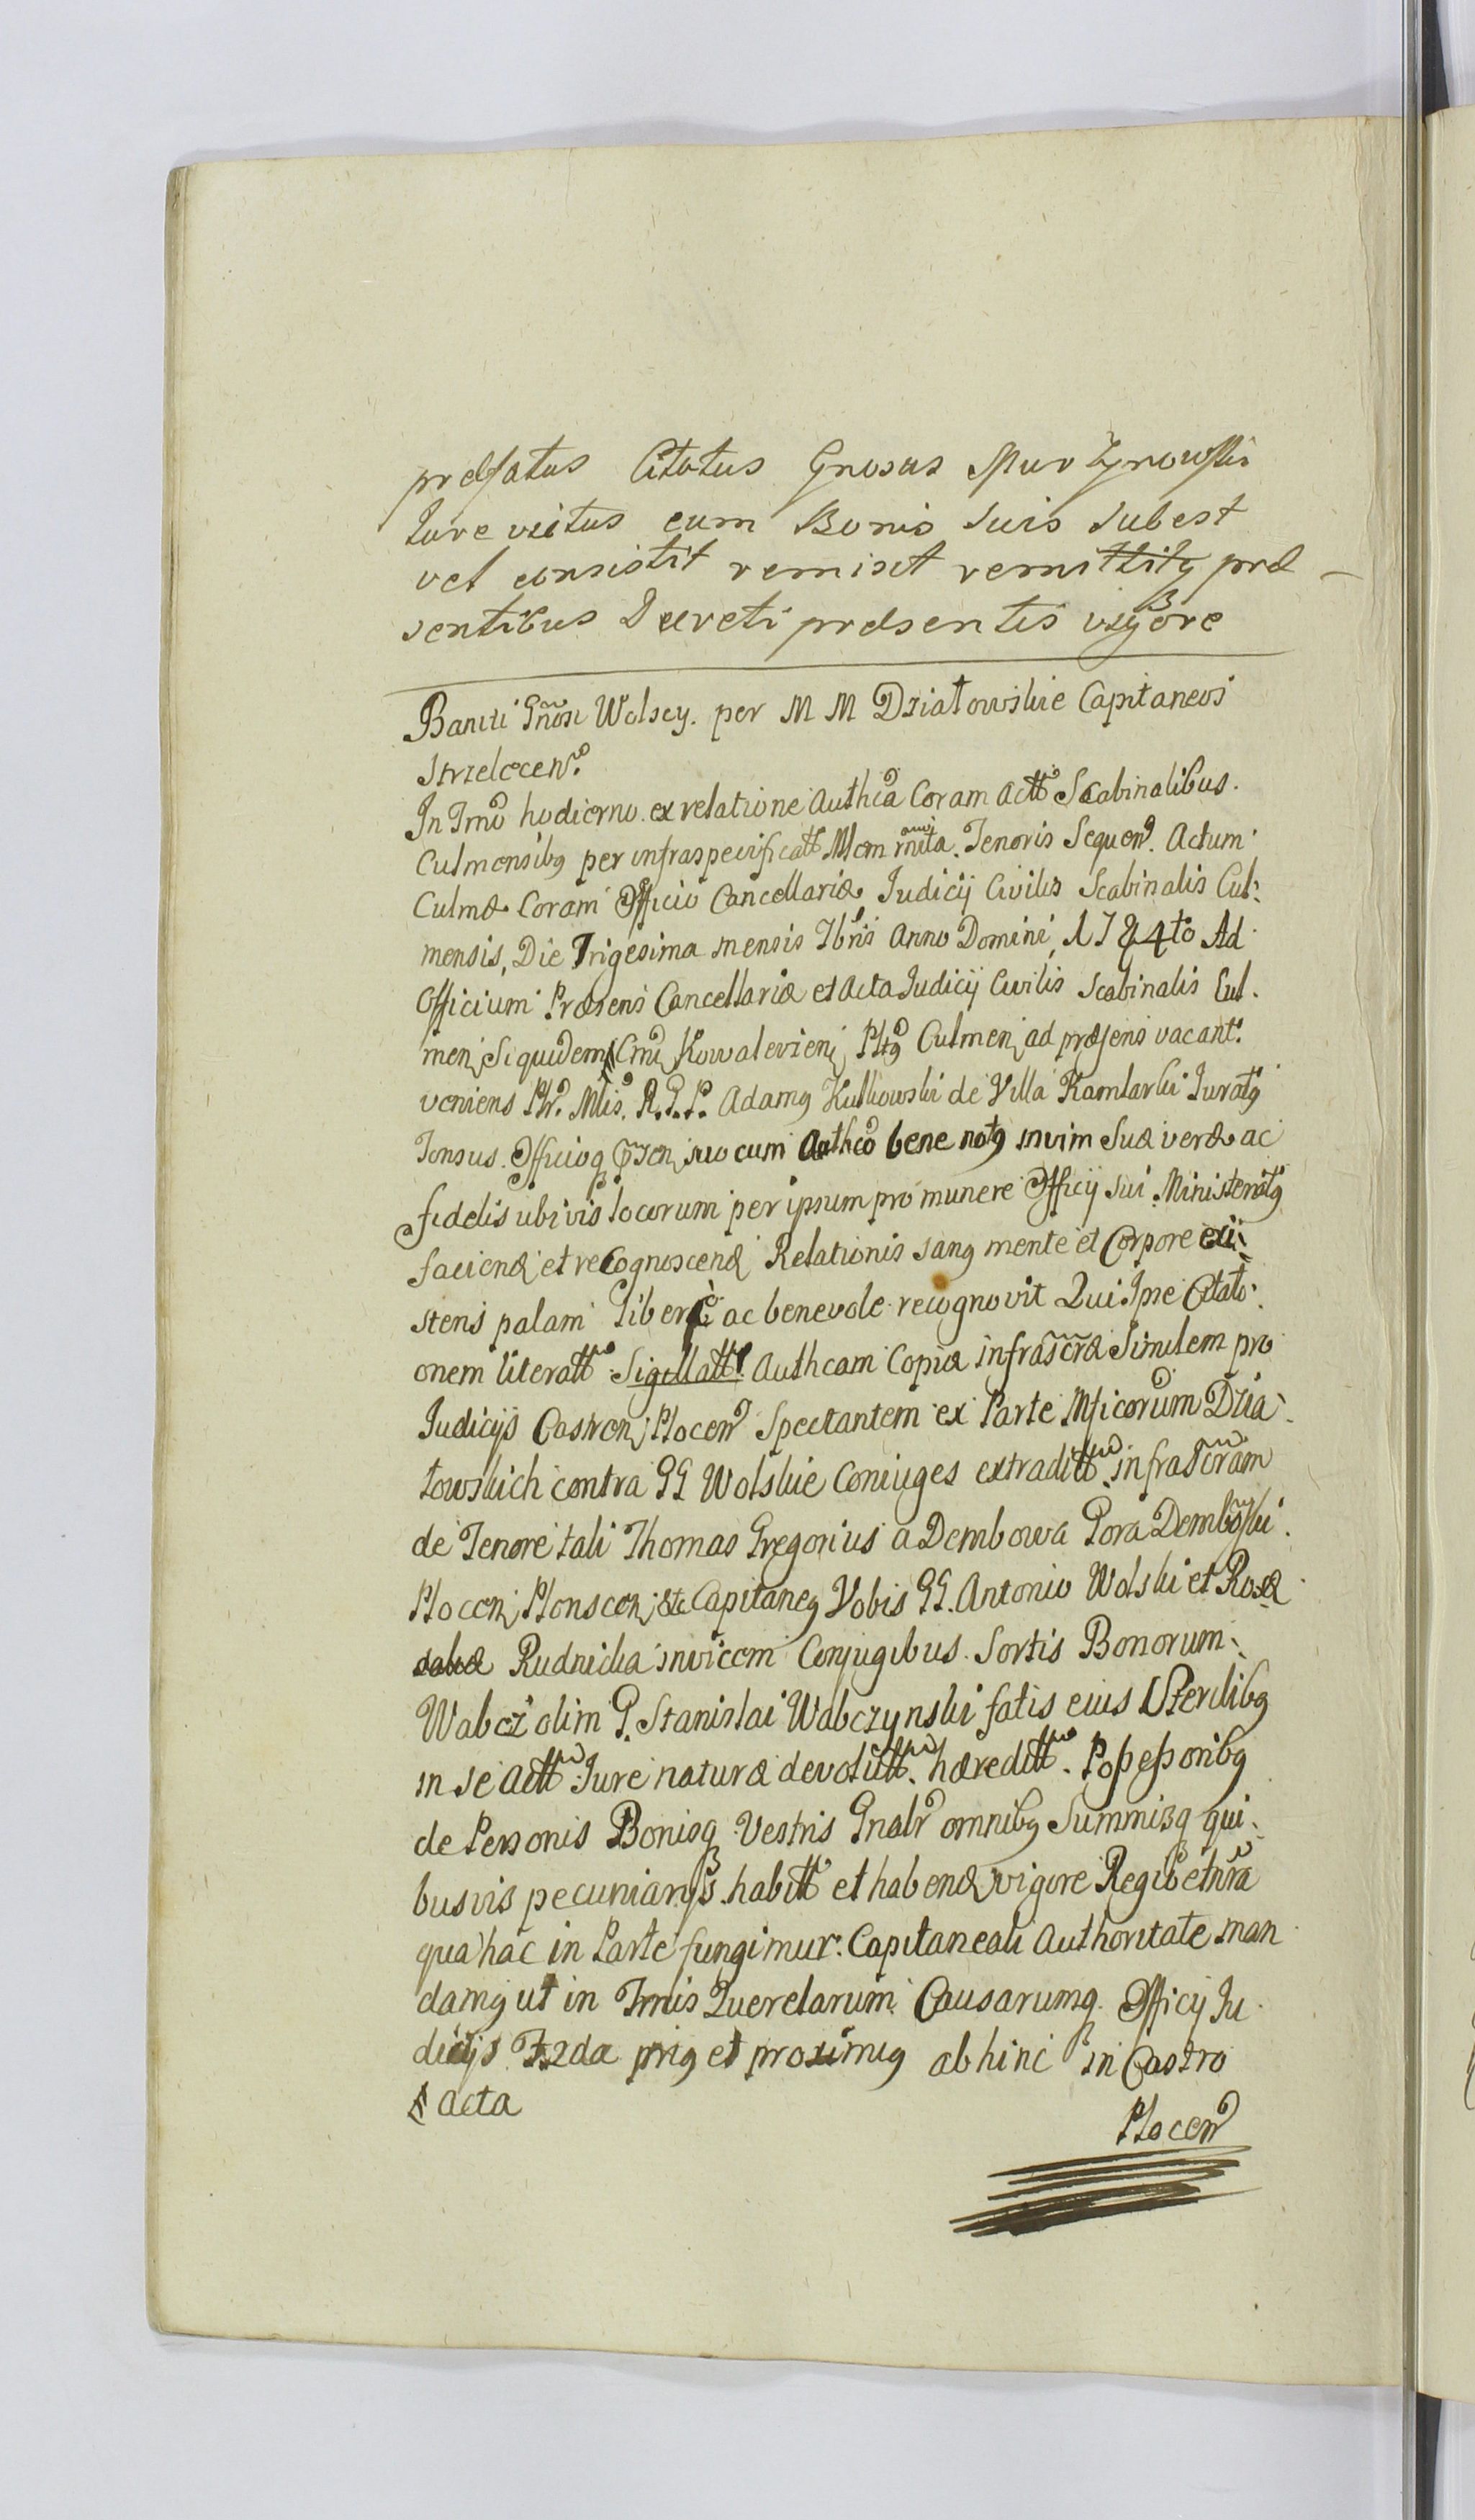 præfatus Citatus Gnosus Murzynowski
Jure victus cum Bonis suis subest
vel consistit remisit remittitq præ-
sentibus Decreti præsentis vigore
Baniti Gnosi Wolscy per M M Dziatowskie Capitaneos
Strzelcen.
In Tmo hodierno ex relatione Authca Coram Actt Scabinalibus.
Culmensibq per infraspecificatt Mlem rnita. Tenoris Sequen. Actum
Culmæ Coram Officio Cancellariæ Judicij Civilis Scabinalis Cul-
mensis, Die Trigesima mensis 7bris Anno Domini, 1784to Ad
Officium Præsens Cancellariæ et Acta Judicij Civilis Scabinalis Cul.
men, Siquidem Cmi, Kowalevien, Pltq Culmen, ad præsens vacant.
veniens Mtis. R. P. P. Adamq Kulkowski de Villa Kamlarki Juratq
Tonsus. Officioq suo cum Authco bene notq invim Suæ veræ ac
fidelis ubivis locorum per ipsum pro munere Officij sui Ministeriatq
faciend et recognoscend Relationis sanq mente et Corpore exi-
stens palam liberè ac benevole recognovit Qui Ipse Citati-
onem literatt Sigillatt Authcam Copiæ infrascræ Similem pro
Judicijs Castren, Plocen Spectantem ex Parte Mficorum Dzia-
towskich contra GG Wolskie Coniuges extraditt infrascram
de Tenore tali Thomas Gregorius a Dembowa Gora Dembowski
Plocen, Plonscen, &c Capitaneq Vobis GG. Antonio Wolski et Rosæ
Rudnicka invicem Conjugibus Sortis Bonorum
Wabcz olim G. Stanislai Wabczynski fatis eius Sterilibq
in se Actt Jure naturæ devolutt hæreditt. Possessoribq
de Personis Bonisq Vestris Gnalr omnibq Summisq qui-
busvis pecuniarijs habitt et habend vigore Regia et nra
qua hac in Parte fungimur Capitaneali Authoritate man
damq ut in Tmis Querelarum Causarumq Officij Ju
dicijs Fzda priq et proximiq abhinc in Castro
Acta
Plocen